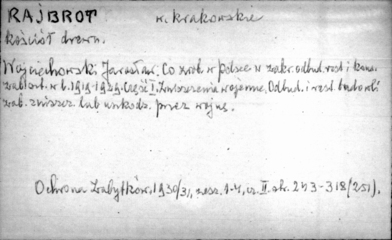 RAJBROT w. krakowskie
kościół drewn.
Wojciechowski Jarosław. Co zrob. w Polsce w zakr. odbud. rest. i kons.
zabytk. w l. 1919-1929. Część I. Zniszczenia wojenne, Odbud. i rest. budowli
zab. zniszcz. lub uszkodz. przez wojnę.
Ochrona Zabytków, 1930/31, zesz. 1-4, cz. II. str. 243-318 (251).